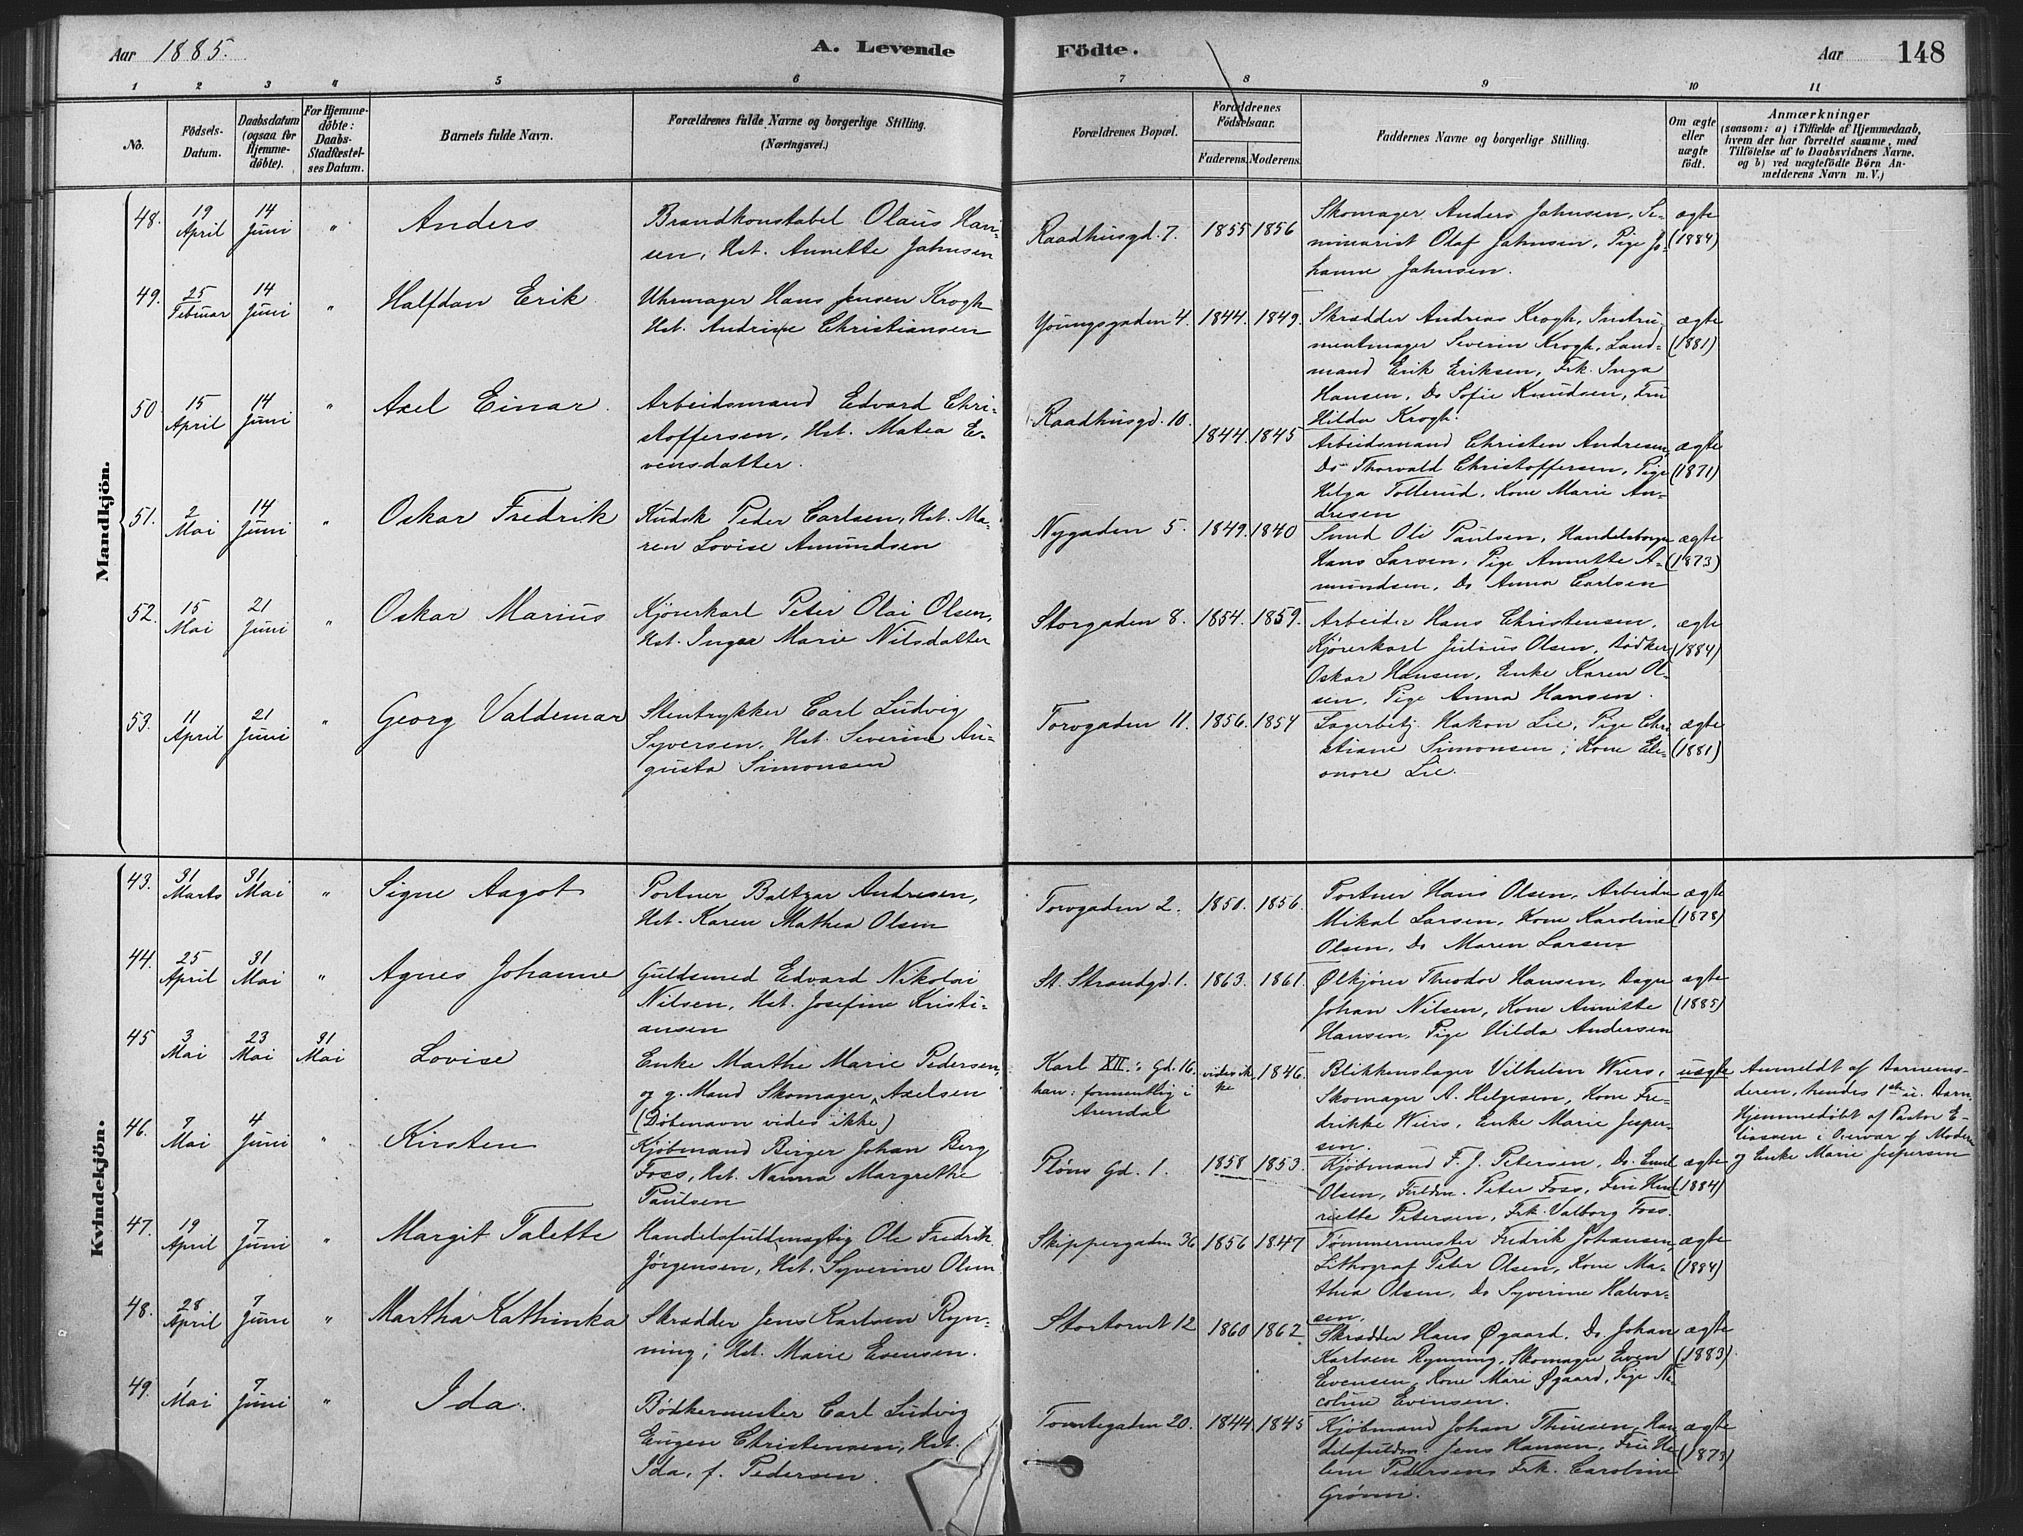 Aar 1885.
A. Levende Födte.
Aar 148
1 2 3 4 5 6 7 8 9 10 11
No.
Födsels-Datum.
Daabsdatum (ogsaa for Hjemmedöbte).
For Hjemmedöbte: Daabs-Stadfæstelses Datum.
Barnets fulde Navn.
Forældrenes fulde Navne og borgerlige Stilling.
(Næringsvei.)
Forældrenes Bopæl.
Forældrenes Födselsaar.
Faderens. Moderens.
Faddernes Navne og borgerlige Stilling.
Om ægte eller uægte født.
Anmærkninger
(saasom: a) i Tilfælde af Hjemmedaab, hvem der har forrettet samme, med Tilföielse af to Daabsvidners Navne, og b) ved uægtefödte Börn Anmelderens Navn m. V.)
Mandkjön.
48. 19 April 14 Juni " Anders
Brandkonstabel Olaus Han-
sen, Hst. Annette Jahnsen
Raadhusgd. 7. 1855 1856
Skomager Anders Jahnsen, Se-
minarist Olaf Jahnsen, Pige Jo-
hanne Jahnsen.
ægte (1884)
49. 25 Februar 14 Juni " Halfdan Erik
Uhrmager Hans Jensen Krogh
Hst. Andrine Christiansen
Youngsgaden 4. 1844. 1849.
Skrædder Andreas Krogh, Instru-
mentmager Severin Krogh, Land-
mand Erik Eriksen, Frk. Inga
Hansen, Do Sofie Knudsen, Fru
Hilda Krogh.
ægte (1881)
50. 15 April 14 Juni " Axel Einar.
Arbeidsmand Edvard Chri-
stoffersen, Hst. Matea E-
vensdatter.
Raadhusgd. 10. 1844. 1845
Arbeidsmand Christen Andresen,
Do Thorvald Christoffersen, Pige
Helga Tollerud, Kone Marie An-
dresen
ægte (1871)
51. 2 Mai 14 Juni " Oskar Fredrik
Kudsk Peder Carlsen, Hst. Ma-
ren Lovise Amundsen
Nygaden 5. 1849. 1840
Smed Ole Paulsen, Handelsborger
Hans Larsen, Pige Annette A-
mundsen, Do Anna Carlsen
ægte (1873)
52. 15 Mai 21 Juni " Oskar Marius
Kjørerkarl Peter Olai Olsen,
Hst. Inger Marie Nilsdatter
Storgaden 8. 1854. 1859.
Arbeider Hans Christensen,
Kjørerkarl Julius Olsen, Bødker
Oskar Hansen, Enke Karen Ol-
sen, Pige Anna Hansen.
ægte (1884)
53. 11 April 21 Juni " Georg Valdemar
Stentrykker Carl Ludvig
Syversen, Hst. Severine Au-
gusta Simonsen
Torvgaden 11. 1856. 1854
Lagerbetj. Hakon Lie, Pige Chri-
stiane Simonsen, Kone Ele-
onore Lie.
ægte (1881)
Kvindekjön.
43. 31 Marts 31 Mai " Signe Aagot
Portner Baltzar Andresen,
Hst. Karen Mathea Olsen
Torvgaden 2. 1850. 1856.
Portner Hans Olsen, Arbeider
Mikal Larsen, Kone Karoline
Olsen, Do Maren Larsen
ægte (1878)
44. 25 April 31 Mai " Agnes Johanne
Guldsmed Edvard Nikolai
Nilsen, Hst. Josefine Kristi-
ansen
St. Strandgd. 1. 1863. 1861.
Ølkjører Theodor Hansen, Bager
Johan Nilsen, Kone Annette
Hansen, Pige Hilda Andersen
ægte (1885)
45 3 Mai 23 Mai 31 Mai Lovise
Enke Marthe Marie Pedersen,
og g. Mand Skomager Axelsen
(Døbenavn vides ikke)
Karl XII.s Gd. 16.
han: formentlig i
Arendal
vides ikke 1846.
Blikkenslager Vilhelm Wiers,
Skomager A. Helgesen, Kone Fre-
drikke Wiers, Enke Marie Jesper-
sen.
uægte
Anmeldt af Barnemo-
deren, hendes 1ste u. Barn
Hjemmedøbt af Pastor E-
liassen i Overvær af Moderen
og Enke Marie Jespersen
46. 7 Mai 4 Juni " Kirsten
Kjøbmand Birger Johan Berg
Foss, Hst. Nanna Margrethe
Paulsen
Pløns Gd. 1. 1858 1853.
Kjøbmand F. J. Petersen, Do. Emil
Olsen, Fuldm. Peter Foss, Fru Hen-
riette Petersen, Frk. Valborg Foss.
ægte (1884)
47. 19 April 7 Juni " Margit Talette
Handelsfuldmægtig Ole Fredrik
Jørgensen, Hst. Syverine Olsen
Skippergaden 36 1856 1847
Tømmermester Fredrik Johansen,
Lithograf Peter Olsen, Kone Ma-
thea Olsen, Do Syverine Halvor-
sen.
ægte (1884)
48. 28 April 7 Juni " Martha Kathinka
Skrædder Jens Karlsen Ryn-
ning, Hst. Marie Evensen.
Stortorvet 12 1860 1862
Skrædder Hans Øgaard, Do. Johan
Karlsen Rynning, Skomager Even
Evensen, Kone Marie Øgaard, Pige Ni-
coline Evensen.
ægte (1883)
49. 1 Mai 7 Juni " Ida.
Bødkermester Carl Ludvig
Eugen Christensen, Hst.
Ida, f. Pedersen.
Tomtegaden 20. 1844 1845
Kjøbmand Johan Thuesen, Han-
delsfuldm. Jens Hansen, Fru He-
lene Pedersen, Frk. Caroline
Grønn.
ægte (1873)